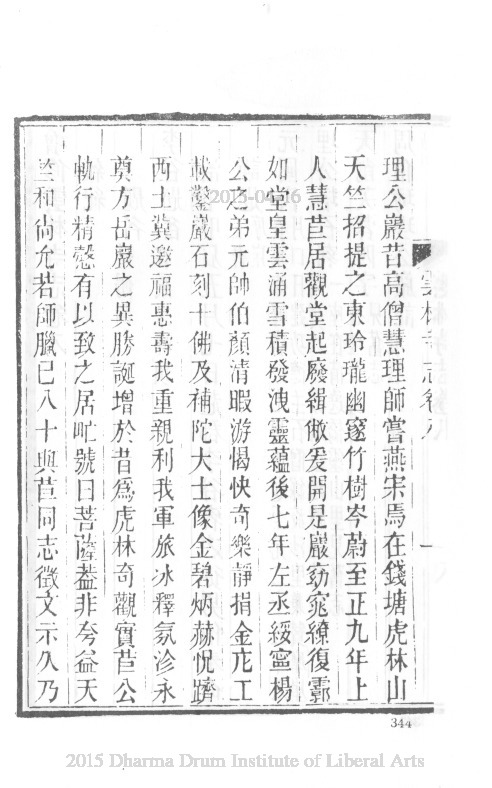 理公巖昔高僧慧理師嘗燕宋焉在錢塘虎林山
天竺招提之東玲瓏幽邃竹樹岑蔚至正九年上
人慧苣居觀堂起廢緝敝爰開是巖窈窕繚復霩
如堂皇雲涌雪積發洩靈蘊後七年左丞綏寧楊
公之弟元帥伯顏清暇游愒快奇樂靜捐金庀工
載鑿巖石刻十佛及補陀大士像金碧炳赫恍躋
西土冀邀福惠壽我重親利我軍旅冰釋氛沴永
奠方岳巖之異勝誕增於昔爲虎林奇觀實苣公
軌行精慤有以致之居甿號曰菩薩葢非夸益天
竺和尚允若師臘已八十與苣同志徵文示久乃
雲林寺志卷八
一
344
2015-04-16
2015 Dharma Drum Institute of Liberal Arts